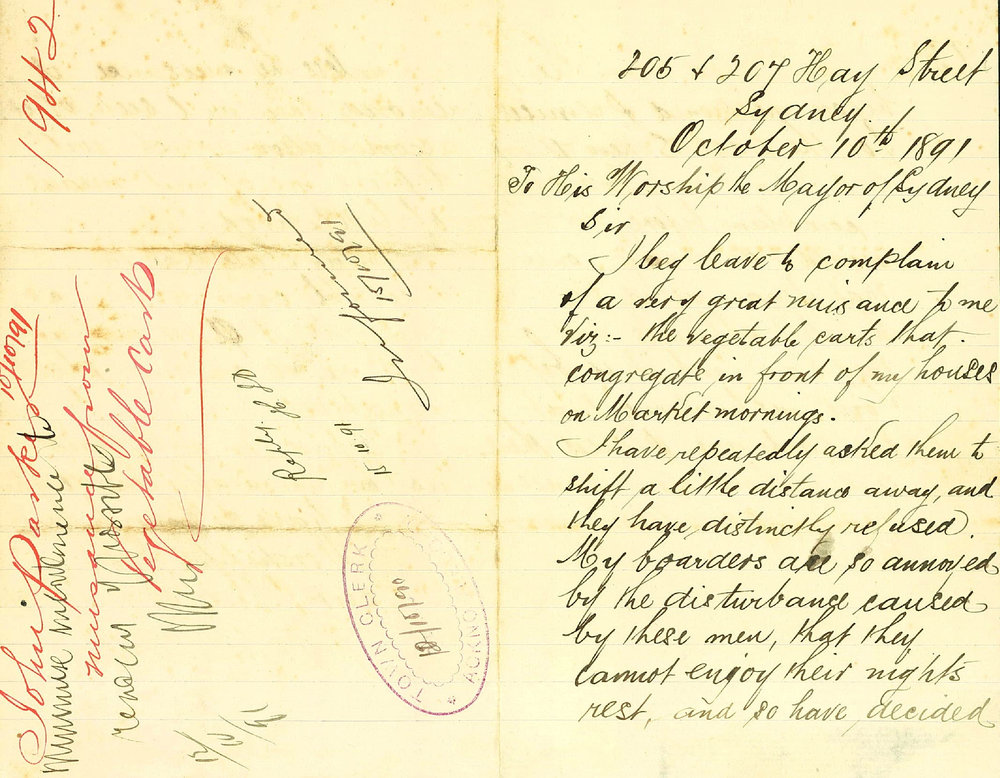 205 & 207 Hay Street
Sydney
October 10th 1891
To His Worship the Mayor of Sydney
Sir
I beg leave to complain
of a very great nuisance to me
Viz:- the vegetable carts that
congregate in front of my houses
on Market mornings.
I have repeatedly asked them to
shift a little distance away, and
they have distinctly refused.
My boarders are so annoyed
by the disturbance caused
by these men, that they
cannot enjoy their nights
rest, and so have decided
1942
John Parker
10/10/91
nuisance from
vegetable carts
15/10/91
15.10.91
TOWN CLERK
12/10/91